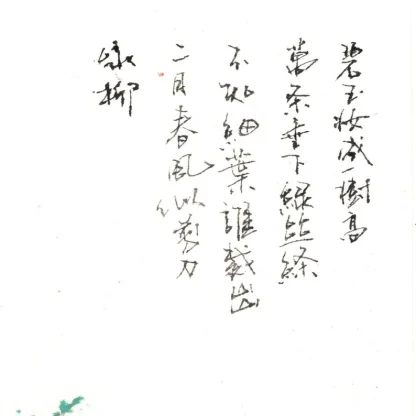 碧玉妆成一樹高
萬条垂下綠丝絛
不知細葉誰裁出
二月春風似剪刀
咏柳